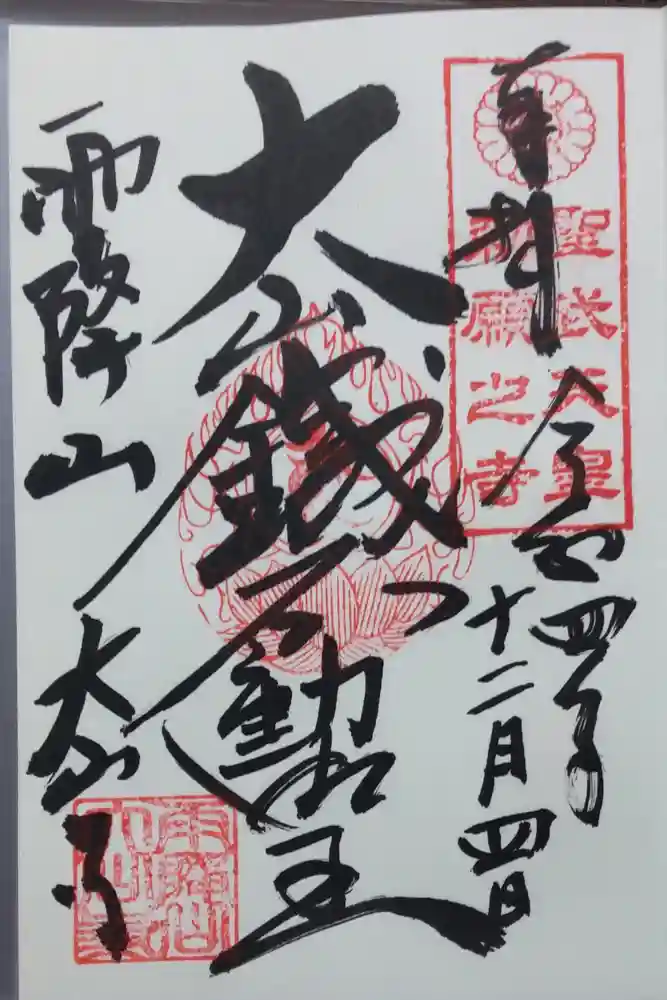 奉拝
聖武天皇
勅願之寺
令和四年
十二月四日
大山鐵不動明王
雨降山
大山寺